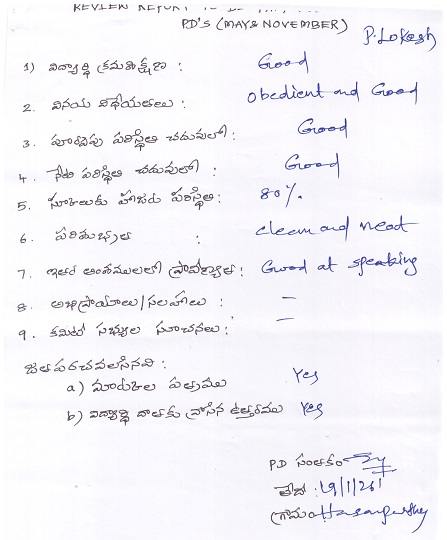 REVIEW REPORT TO BE
PD's (MAY & NOVEMBER)
P. Lokesh
1) విద్యార్థి క్రమశిక్షణ : Good
2. వినయ విధేయతలు : obedient and Good
3. పూర్వపు పరిస్థితి చదువులో : Good
4. నేటి పరిస్థితి చదువులో : Good
5. స్కూలుకు హాజరు పరిస్థితి: 80%.
6. పరిశుభ్రత : cleem and neat
7. ఇతర అంశములలో ప్రావీణ్యత : Good at speaking
8. అభిప్రాయాలు/సలహాలు : –
9. కమిటీ సభ్యుల సూచనలు : –
జతపరచవలసినవి :
a) మార్కుల పత్రము Yes
b) విద్యార్థి దాతకు వ్రాసిన ఉత్తరము Yes
PD సంతకం
తేది :
గ్రామం